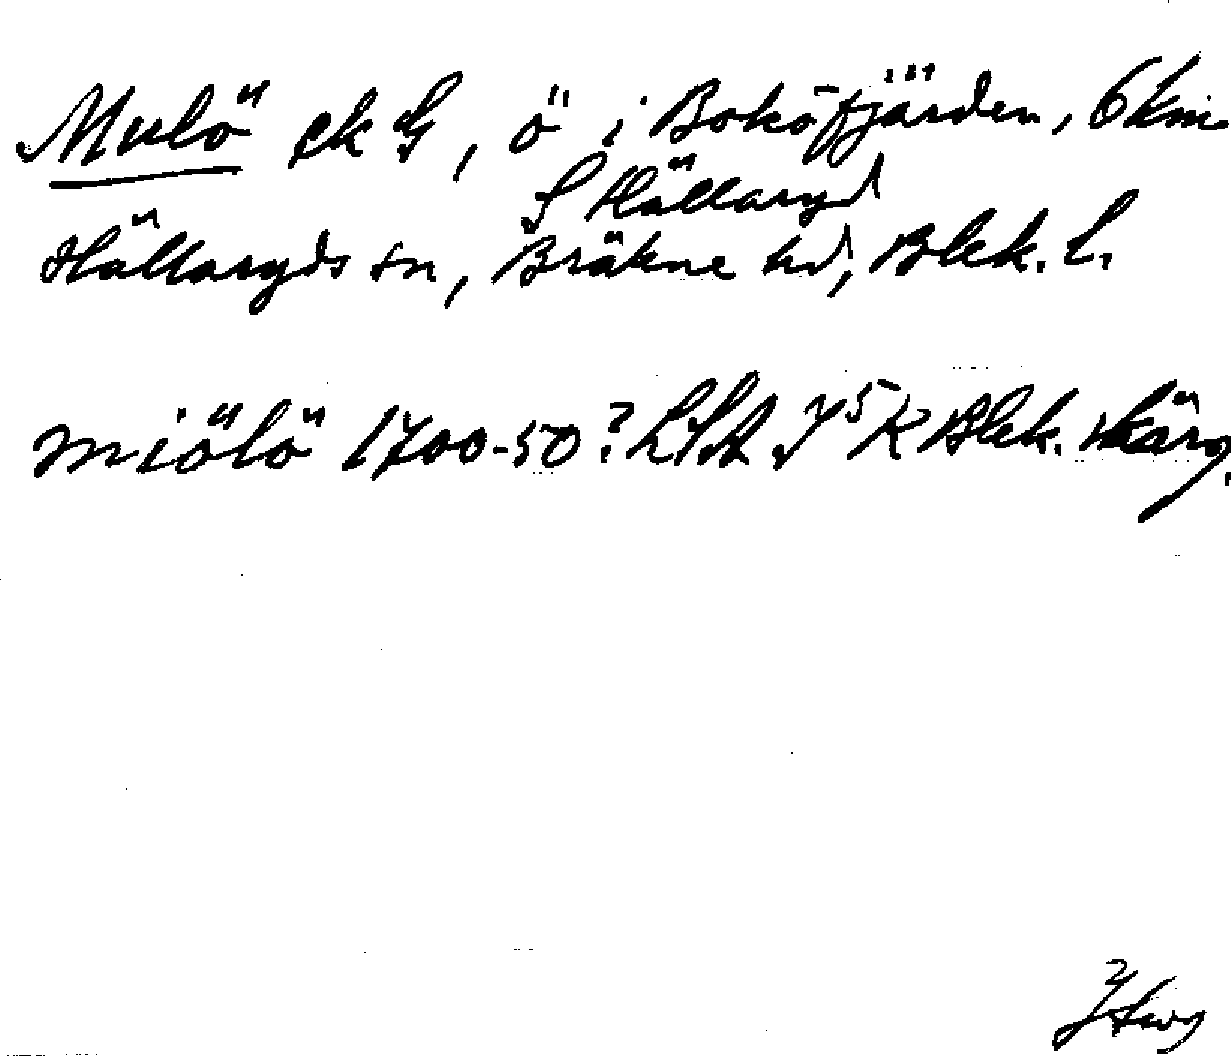 Mulö ek G, ö i Boköfjärden, 6 km
S Hällaryd
Hällaryds sn, Bräkne hd, Blek. l.
miölö 1700-50? LSA J⁵ K Blek. skärg.